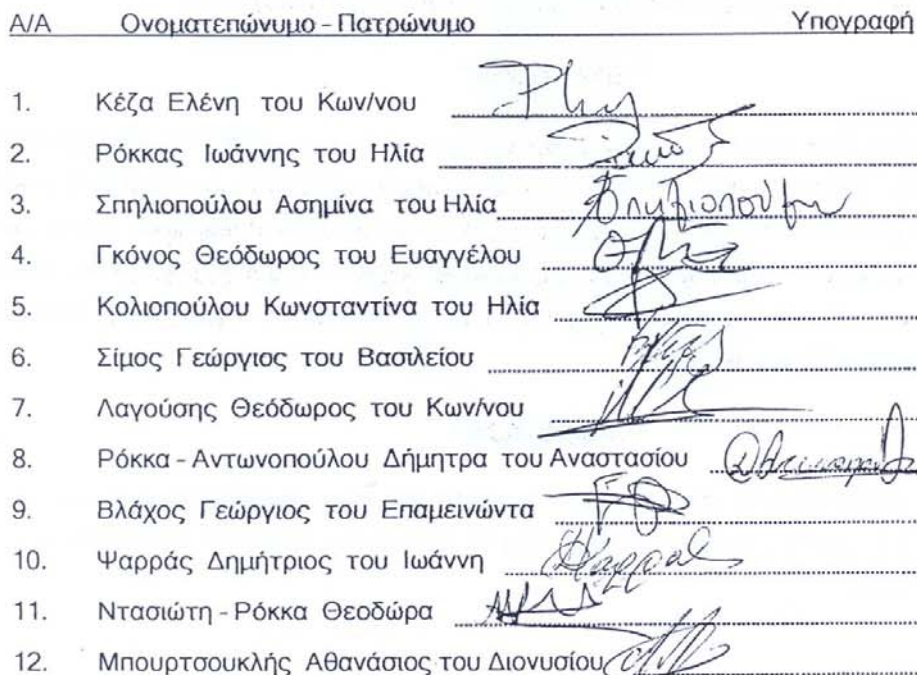 Α/Α Ονοματεπώνυμο - Πατρώνυμο Υπογραφή
1. Κέζα Ελένη του Κων/νου
2. Ρόκκας Ιωάννης του Ηλία
3. Σπηλιοπούλου Ασημίνα του Ηλία Σπηλιοπούλου
4. Γκόνος Θεόδωρος του Ευαγγέλου
5. Κολιοπούλου Κωνσταντίνα του Ηλία
6. Σίμος Γεώργιος του Βασιλείου
7. Λαγούσης Θεόδωρος του Κων/νου
8. Ρόκκα - Αντωνοπούλου Δήμητρα του Αναστασίου
9. Βλάχος Γεώργιος του Επαμεινώντα
10. Ψαρράς Δημήτριος του Ιωάννη
11. Ντασιώτη - Ρόκκα Θεοδώρα
12. Μπουρτσουκλής Αθανάσιος του Διονυσίου